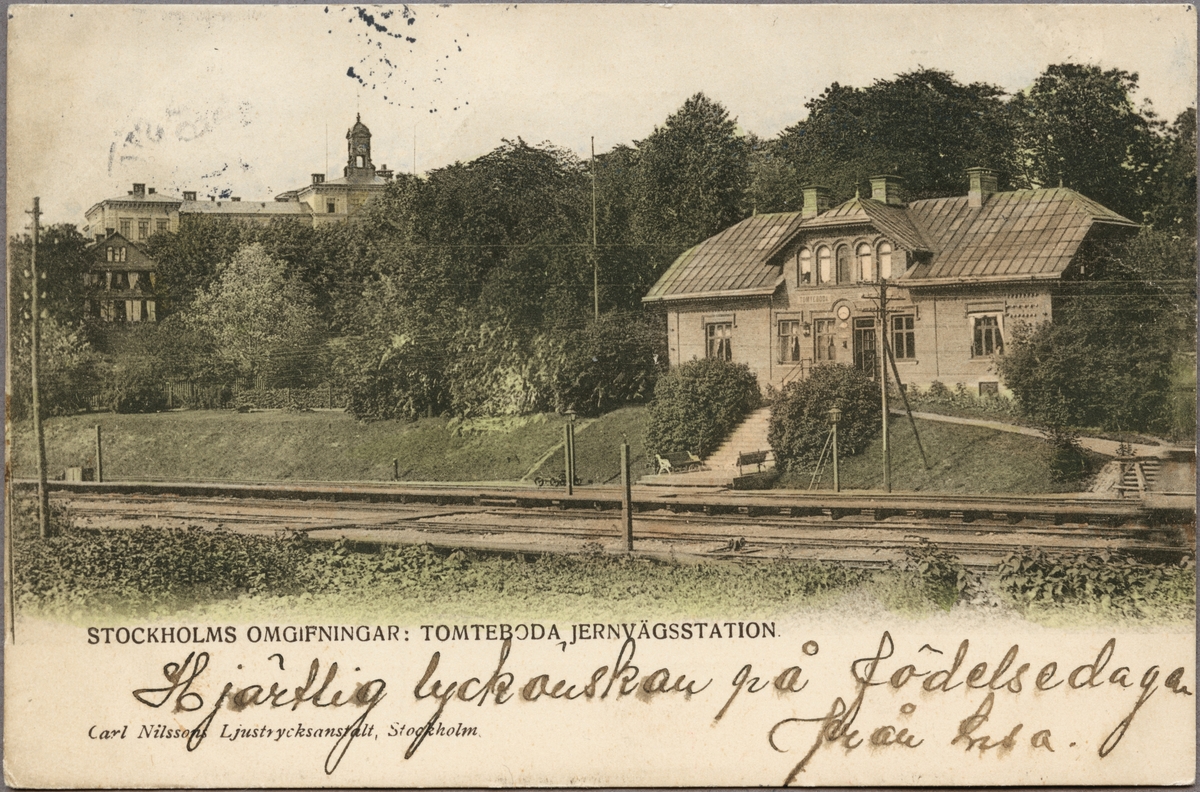 TOMTEBODA
STOCKHOLMS OMGIFNINGAR: TOMTEBODA JERNVÄGSSTATION.
Hjärtlig lyckönskan på födelsedagen
Carl Nilssons Ljustrycksanstalt, Stockholm.
från